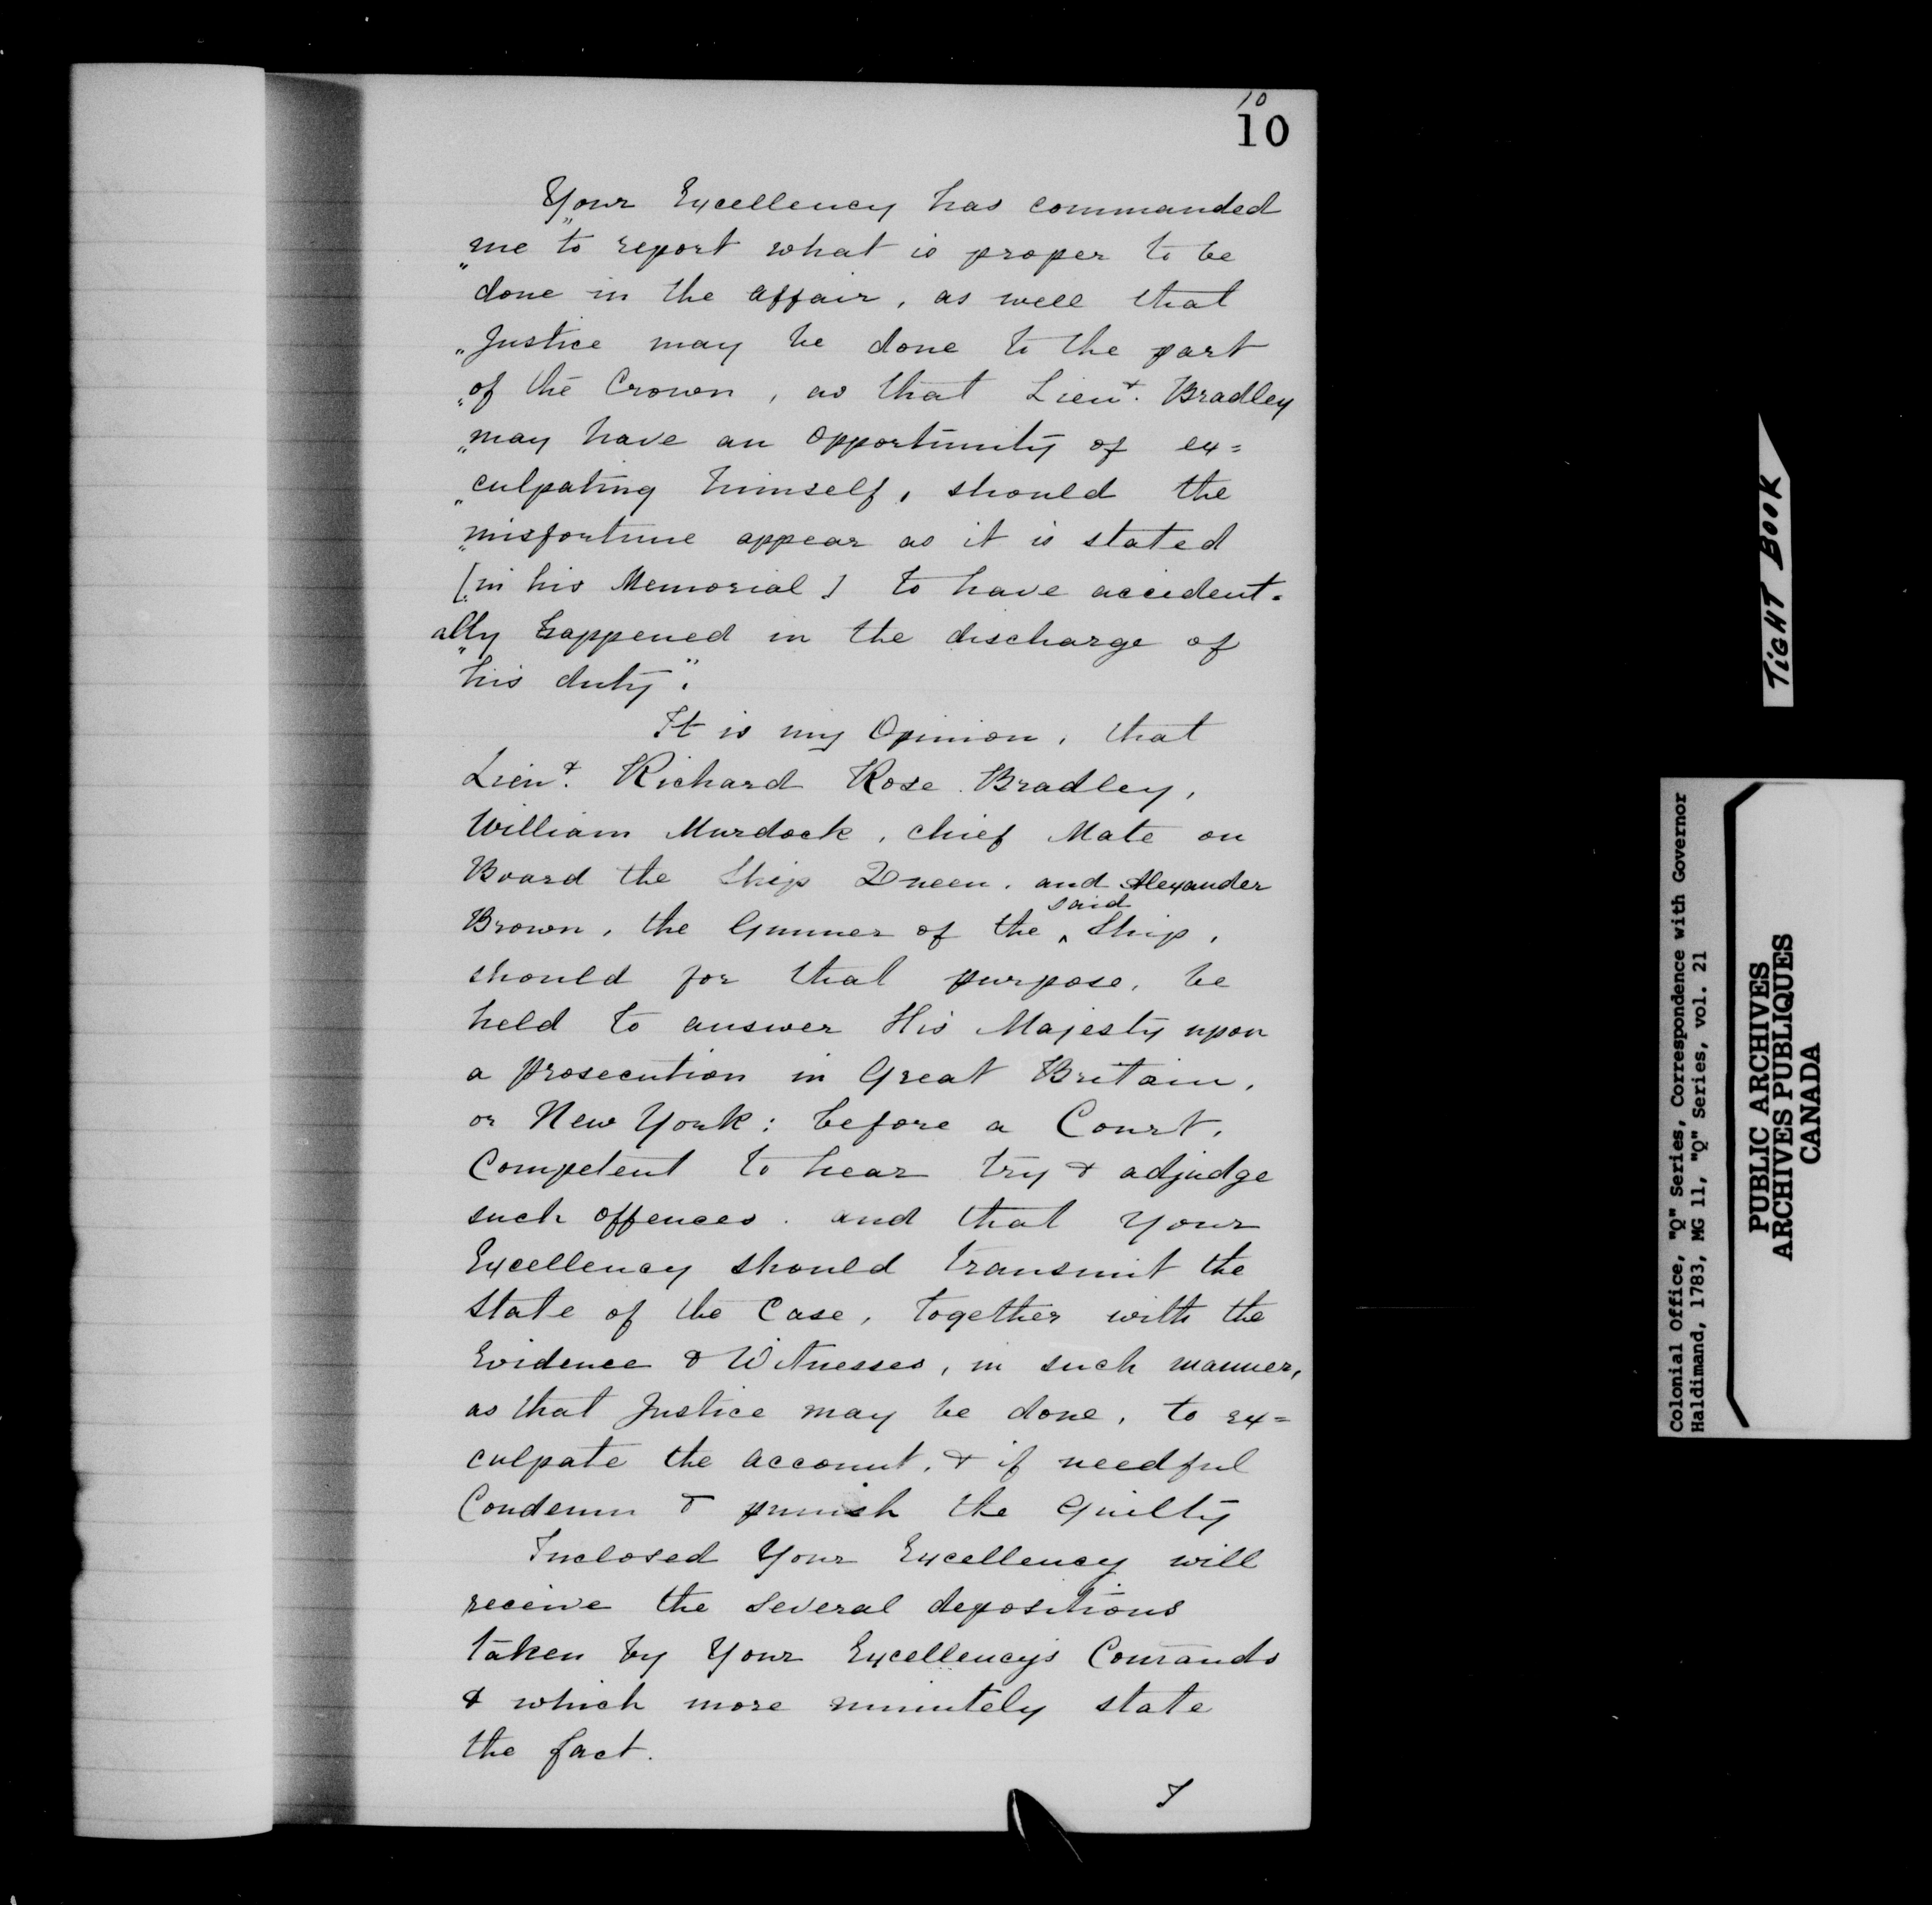 10
10
Your Excellency has commanded
"me to report what is proper to be
"done in the affair, as well that
"Justice may be done to the part
"of the Crown, as that Lieut. Bradley
"may have an opportunity of ex=
"culpating himself, should the
"misfortune appear as it is stated
[in his Memorial] to have accident-
ally happened in the discharge of
"his duty".
It is my Opinion, that
Lieut. Richard Rose Bradley,
William Murdock, chief Mate on
Board the Ship Queen, and Alexander
said
Brown, the Gunner of the ^ Ship,
should for that purpose, be
held to answer His Majesty upon
a prosecution in Great Britain,
or New York: before a Court,
Competent to hear try & adjudge
such offences. and that your
Excellency should transmit the
State of the Case, together with the
Evidence & Witnesses, in such manner,
as that Justice may be done, to ex=
culpate the account, & if needful
Condemn & punish the guilty
Inclosed Your Excellency will
receive the several depositions
taken by Your Excellency's Comands
& which more minutely state
the fact.
I
TIGHT BOOK
Colonial Office, "Q" Series, Correspondence with Governor
Haldimand, 1783, MG 11, "Q" Series, vol. 21
PUBLIC ARCHIVES
ARCHIVES PUBLIQUES
CANADA